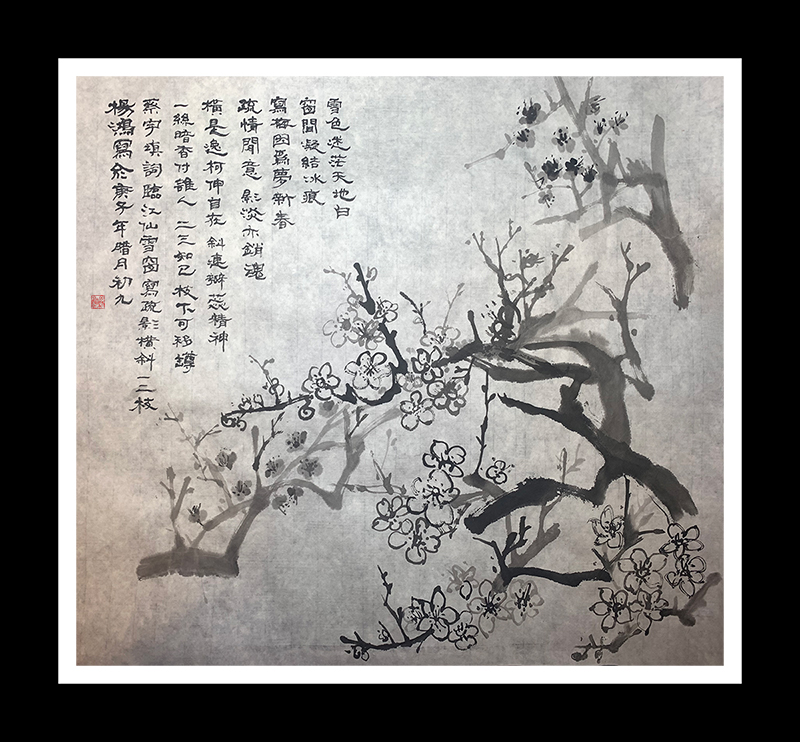 雪色迷茫天地白
窗間凝結冰痕
寫梅因爲夢新春
疏情聞意 影淡亦銷魂
橫是逸柯伸自在 斜連瓣蕊精神
一絲暗香付誰人 二三知己 枝下可移罇
蔡宇填詞臨江仙雪窗寫疏影橫斜一二枝
楊鴻寫於庚子年腊月初九